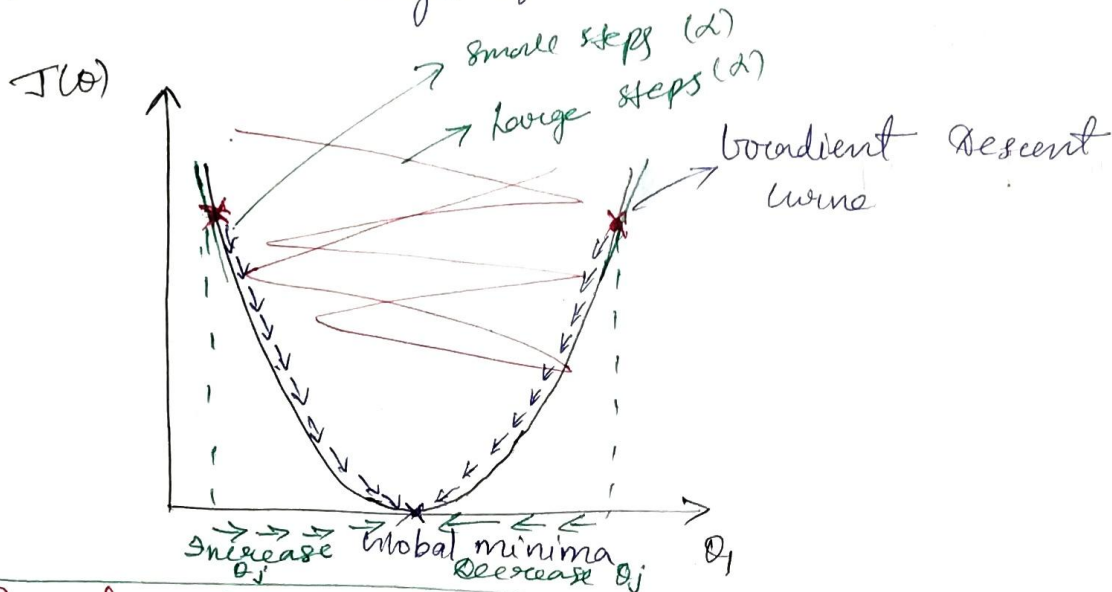 J(θ)
Smale steps (α)
Large steps (α)
Gradient Descent
curve
Increase
θj
Global minima
Decrease θj
θ1